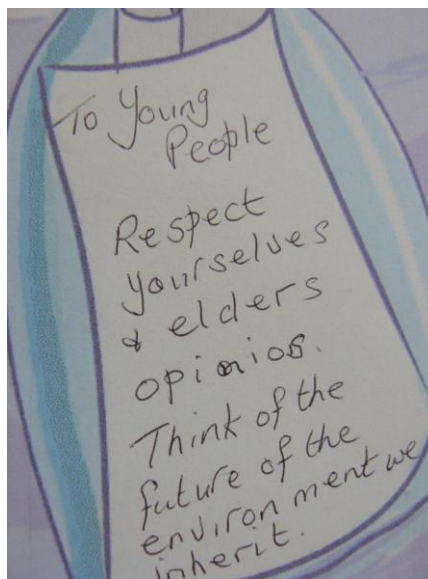 To Young
People
Respect
yourselves
& elders
opinios.
Think of the
future of the
environment we
inherit.